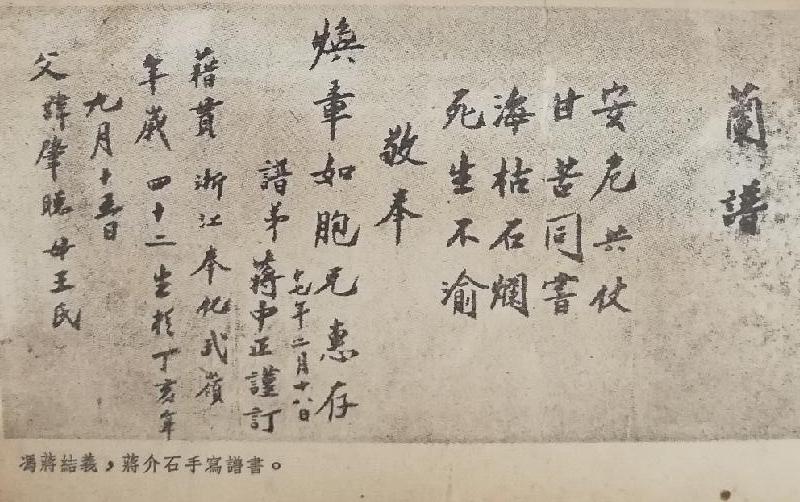 蘭譜
安危共仗
甘苦同嘗
海枯石爛
死生不渝
敬奉
煥章如胞兄惠存
譜弟蔣中正謹訂
七年二月十八日
籍貫 浙江奉化武嶺
年歲 四十二 生於丁亥年
九月十五日
父諱肇聰 母王氏
馮蔣結義，蔣介石手寫譜書。